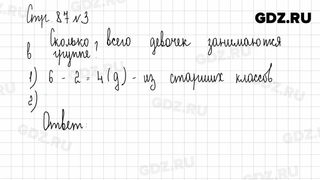 GDZ.RU
Стр. 87 №3
Сколько всего девочек занимаются
в группе?
1) 6 - 2 = 4 (д) - из старших классов
2)
Ответ